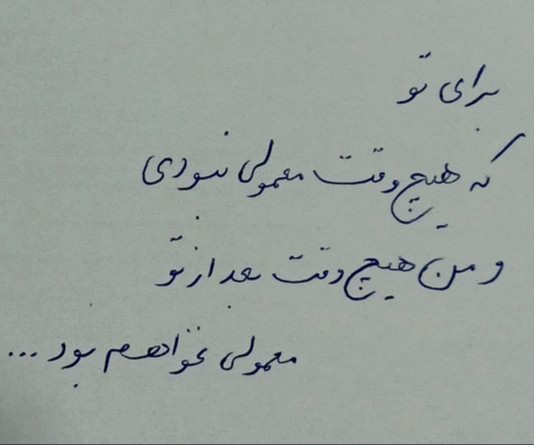 برای تو
که هیچ وقت معمولی نبودی
و من هیچ وقت بعد از تو
معمولی نخواهم بود ...